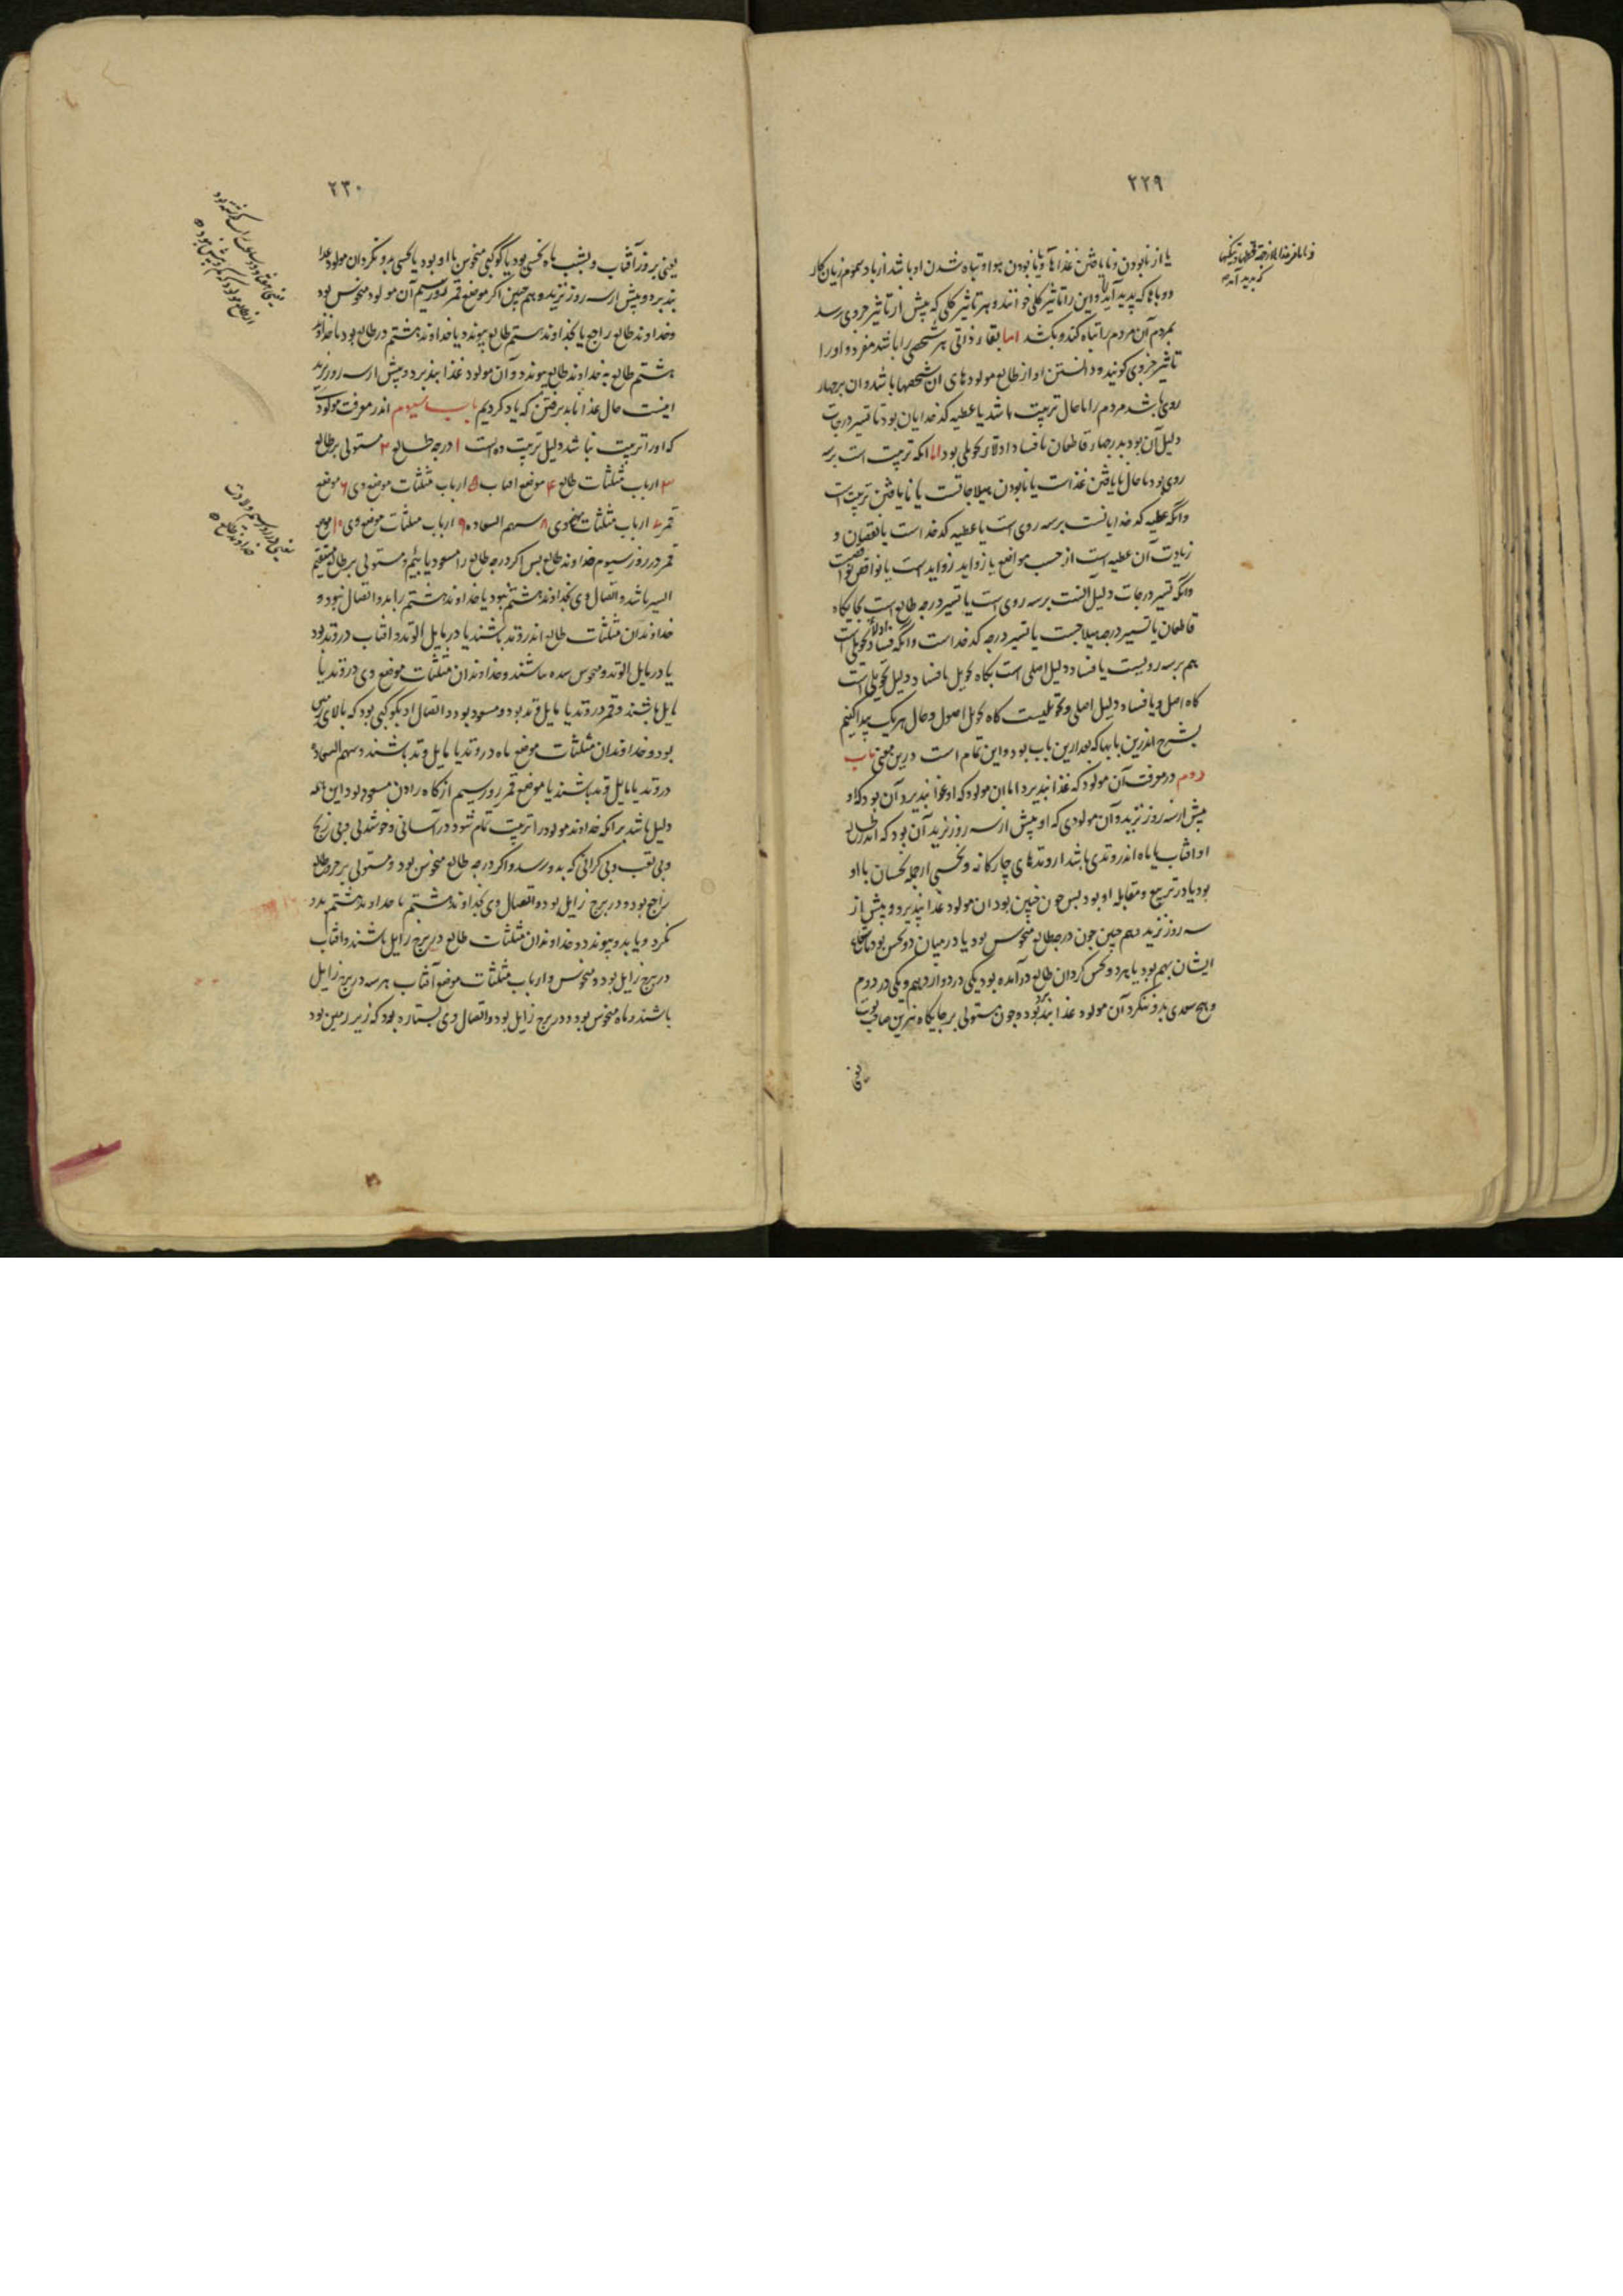 ۲۲۹
یا از نابودن و نایافتن غذاها و یا نابودن هوا و تباه شدن او باشد از باد سموم زیان کار
و وباها که پدید آید و این را تاثیر کلی خوانند و هر تاثیر کلی که پیش از تاثیر جزوی رسد
بمردم آن مردم را تباه کند و بکشد اما بقاء ذاتی هر شخصی را باشد مفرد و او را
تاثیر جزوی کویند و دانستن او از طالع مولودهای ان شخصها باشد و ان بر چهار
روی باشد مردم را یا حال تربیت باشد یا عطیه کدخدایان بود یا تسییر درجات
دلیل آن بود بدرجهاء قاطعان یا فساد ادلاء تحویلی بود اما انکه تربیت است بر سه
روی بود یا حال نایافتن غذاست یا نابودن هیلاجاتست یا نایافتن تربیت است
وانکه عطیه کدخدایانست بر سه روی است یا عطیه کدخداست یا نقصان و
زیادت آن عطیه است از حسب مواضع یا زواید زوایدست یا نواقص
وانکه تسییر درجات دلیل آنست بر سه روی است یا تسییر درجه طالع است بجایکاه
قاطعان یا تسییر درجه هیلاجست یا تسییر درجه کدخداست وانکه فساد ادلاء تحویلی است
هم بر سه رویست یا فساد دلیل اصلی است بکاه تحویل یا فساد دلیل تحویلی است
کاه اصل و یا فساد دلیل اصلی و تحویلیست کاه تحویل اصول و حال هر یک پیدا کنیم
بشرح اندرین بابها که بعد ازین باب بود و این تمام است درین معنی باب
دوم در معرفت آن مولود که غذا نپذیرد اما ان مولود که او غذا نپذیرد آن بود که او
پیش از سه روز نزید و آن مولودی که او پیش از سه روز نزید آن بود که اندر طالع
او افتاب یا ماه اندر وتدی باشد از وتدهای چارکانه و نحسی از جمله نحسان با او
بود یا در تربیع و مقابله او بود پس چون چنین بود ان مولود غذا نپذیرد و پیش از
سه روز نزید و هم چنین چون درجه طالع منحوس بود یا در میان دو نحس بود
ایشان بهم بود یا هر دو نحس کردان طالع درآمده بود یکی در دوازدهم و یکی در دوم
و هیچ سعدی بدو ننکرد آن مولود غذا نپذیرد و چون مستولی بر جایکاه نیرین صاحب نوبت
۲۳۰
یعنی بروز آفتاب و بشب ماه نحسی بود یا کوکبی منحوس با او بود یا نحسی بدو نکرد ان مولود غذا
نپذیرد و پیش از سه روز نزید و هم چنین اکر موضع قمر روز سیم آن مولود منحوس بود
و خداوند طالع راجع یا بخداوند هشتم طالع پیوندد یا خداوند هشتم در طالع بود یا خداوند
هشتم طالع به خداوند طالع پیوندد و آن مولود غذا نپذیرد و پیش از سه روز نزید
اینست حال غذا ناپذیرفتن که یاد کردیم باب سیوم اندر معرفت مولود
که او را تربیت نباشد دلیل تربیت ده است ۱ درجه طالع ۲ مستولی بر طالع
۳ ارباب مثلثات طالع ۴ موضع افتاب ۵ ارباب مثلثات موضع وی ۶ موضع
قمر ۷ ارباب مثلثات موضع وی ۸ سهم السعاده ۹ ارباب مثلثات موضع وی ۱۰ موضع
قمر در روز سیوم خداوند طالع پس اکر درجه طالع را مسعود یابیم و مستولی بر طالع مستقیم
السیر باشد و اتصال وی بخداوند هشتم نبود یا خداوند هشتم را بدو اتصال نبود و
خداوندان مثلثات طالع اندر وتد باشند یا در مایل الوتد و افتاب در وتد بود
یا در مایل الوتد و منحوس نبود باشند و خداوندان مثلثات موضع وی در وتد یا
مایل باشند و قمر در وتد یا مایل وتد بود و مسعود بود و اتصال او بکوکبی بود که بالای زمین
بود و خداوندان مثلثات موضع ماه در وتد یا مایل وتد باشند و سهم السعاده
در وتد یا مایل وتد باشند یا موضع قمر روز سیم از کاه زادن مسعود بود این همه
دلیل باشد بر انکه خداوند مولود را تربیت تمام شود در آسانی و خوشدلی و بی رنج
و بی تعب و بی کرانی که بدو رسد و اکر درجه طالع منحوس بود و مستولی بر درجه طالع
راجع بود و در برج زایل بود و اتصال وی بخداوند هشتم یا خداوند هشتم بدو
نکرد و یا بدو پیوندد و خداوندان مثلثات طالع در برج زایل باشند و افتاب
در برج زایل بود و منحوس و ارباب مثلثات موضع آفتاب هر سه در برج زایل
باشند و ماه منحوس بود و در برج زایل بود و اتصال وی بستاره بود که زیر زمین بود